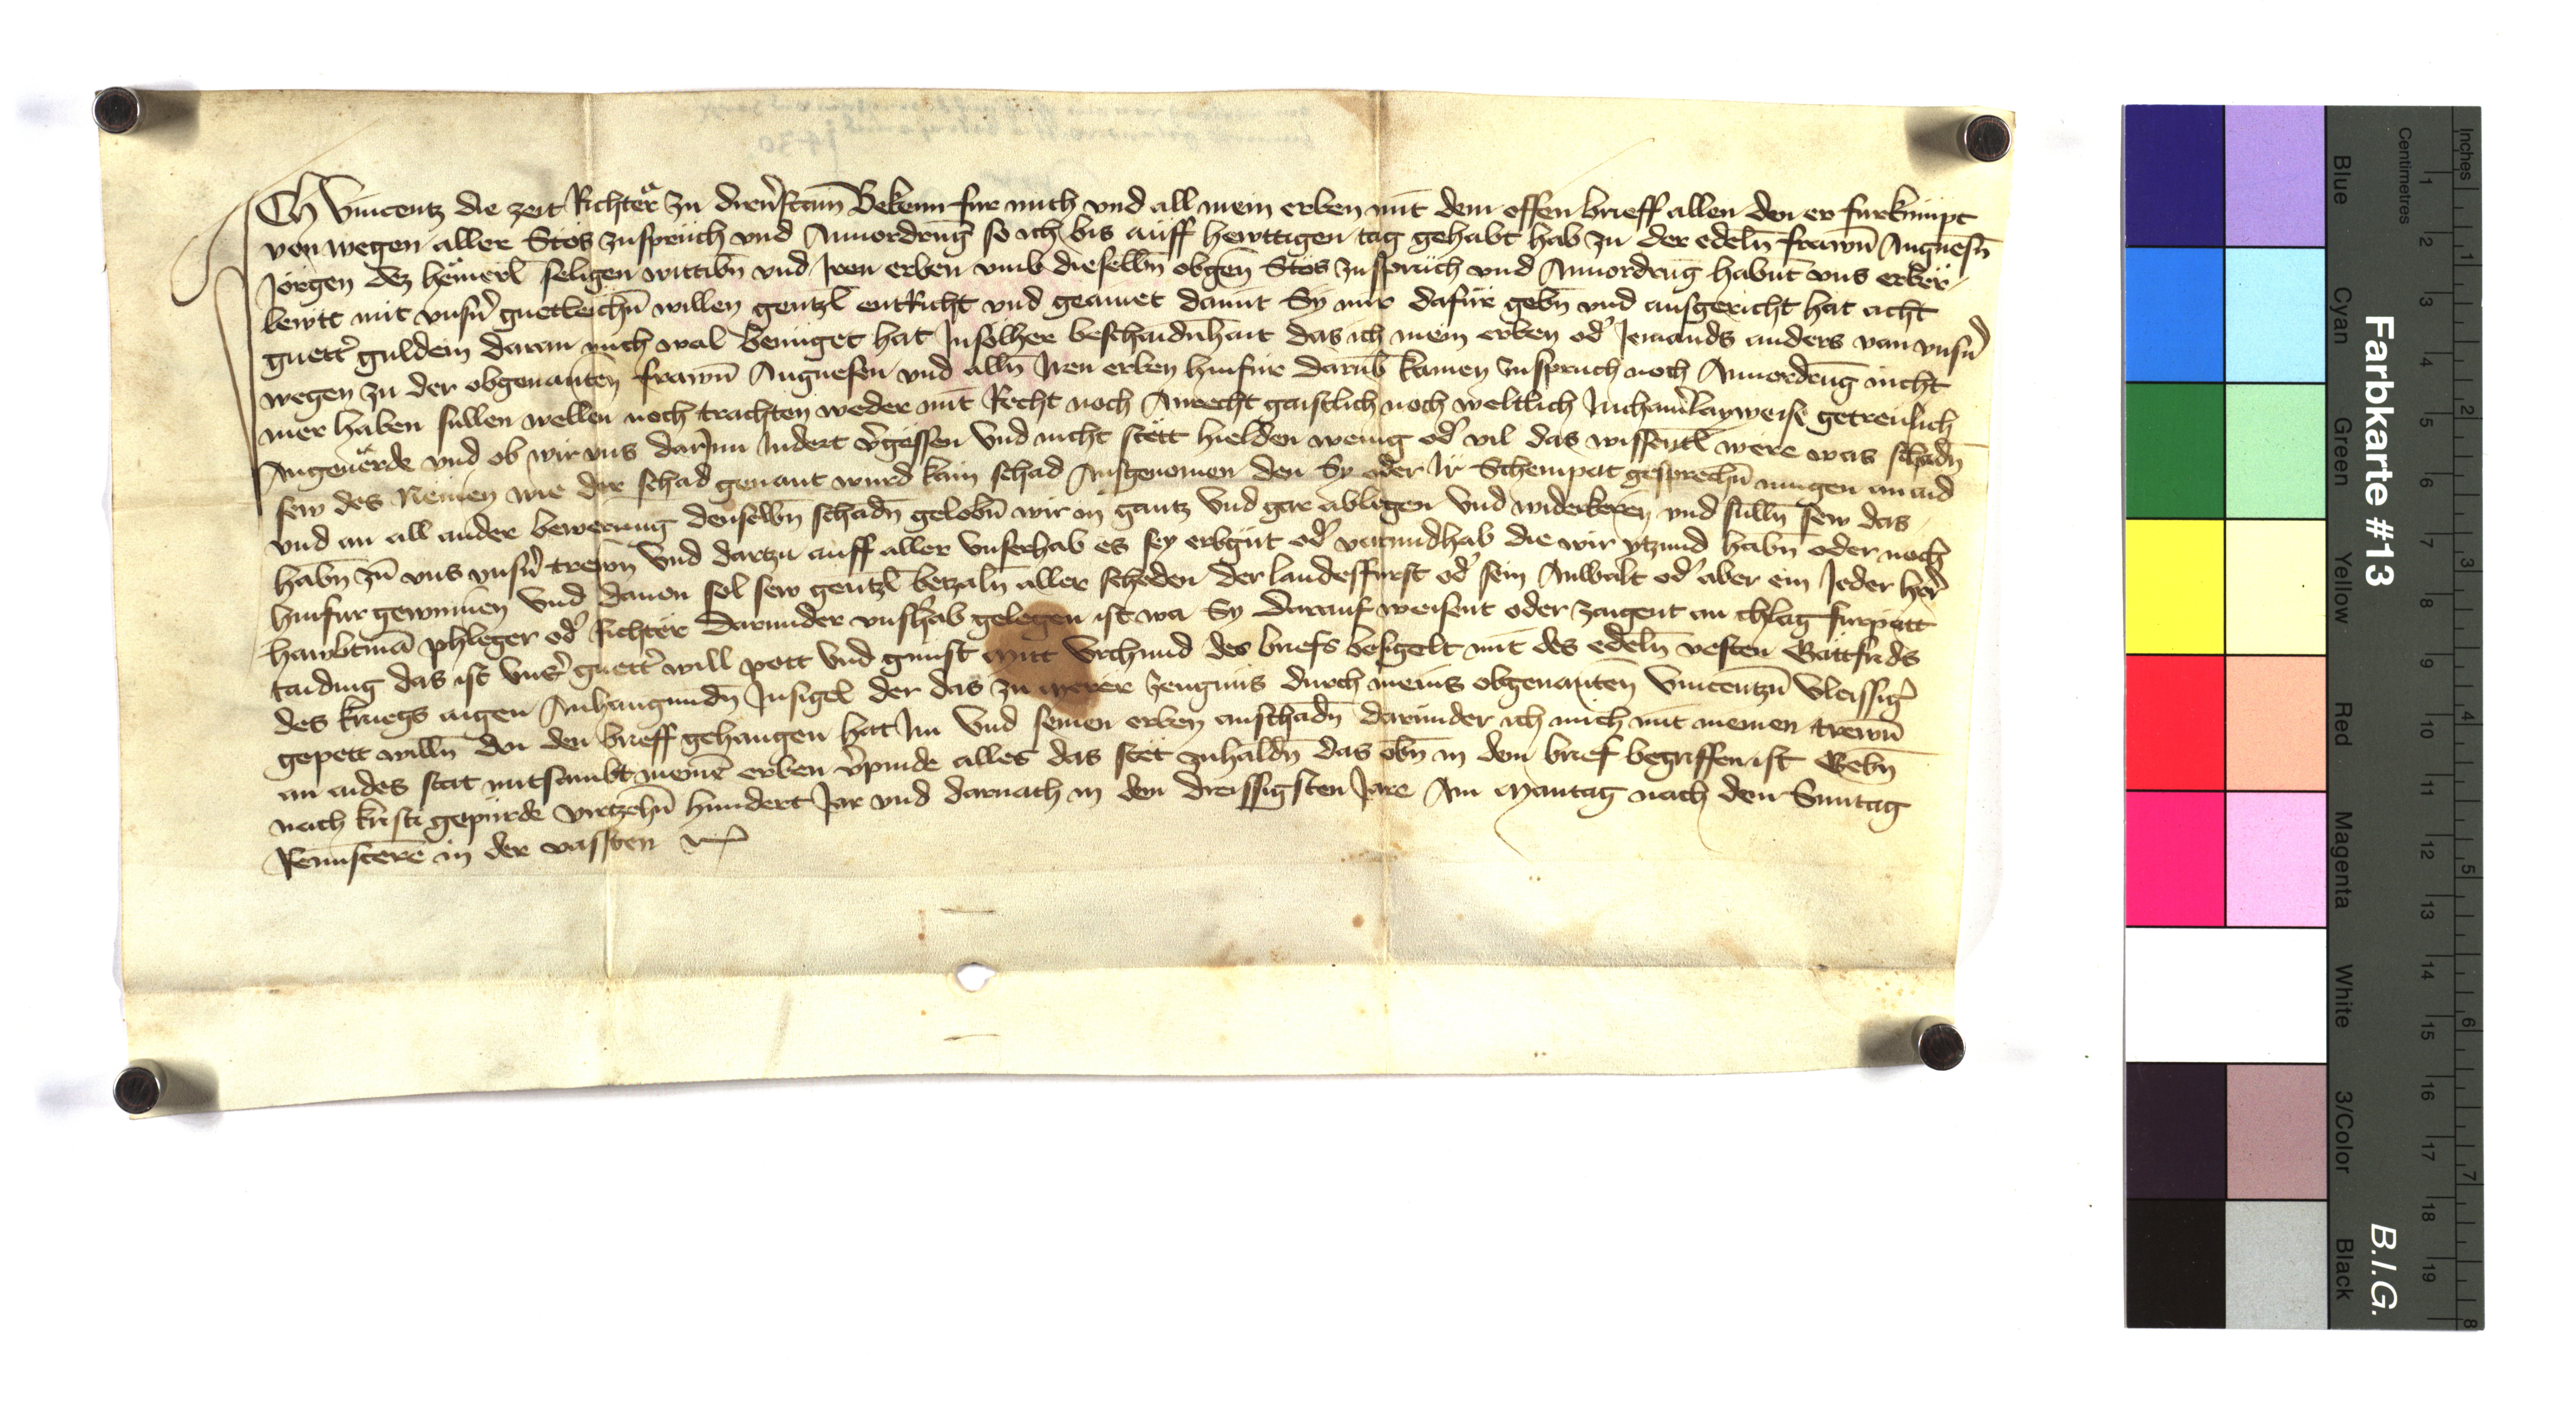 Ich Vincentz die zeit Richter zu Bekenn fur mich vnd all mein erben mit dem offen brieff allen den er furkumpt
von wegen aller Stös zuspruch vnd Anuordrung so ich bis auff hewttigen tag gehabt hab zu der edeln frawn Angnesn
Jörgen dez seligen wittibn vnd Iren erben vmb dieselbn obgen Stös zuspruch vnd Anuordrug habnt vns erber
lewtt mit vnsn guetleichn willen gentzl entricht vnd geainet damit Sy mir dafür gebn vnd ausgericht hat acht
guett guldein daran mich wol benuget hat In solher beschaidnhait das ich mein erben od Iemands anders von vnsn
wegen zu der obgenanten frawn Angnesen vnd alln Iren erben hinfür darub kainen zuspruch noch Anuordrug nicht
mer haben sullen wellen noch trachten weder mit Recht noch Anrecht gaistlich noch weltlich Inchainlayweise getreulich
Angeuerde vnd ob wir vns darInn Indert vgessen vnd nicht stett hielden wenig od vil das wissentl were was schadn
sew des Nemen wie der schad genant wurd kain schad Ausgenomen den Sy oder Ir gesprechn mugen an aid
vnd an all ander bewerung denselbn schadn gelobn wir in gantz vnd gar ablegen vnd widerkeren vnd sulln sew das
habn zu vns vnsn trewn vnd dartzu auff aller vnser hab es sey erbgut od varundhab die wir ytzund habn oder noch
hinfur gewinnen vnd dauon sol sew gentzl betzaln aller scheden der landesffurst od sein Anwalt od aber ein Ieder her
hawbtma phleger od richter darunder vnsr hab gelegen ist wa Sy darauf weisent oder zaigent an chlag furpott
taiding das ist vns guett will pott vnd gunst Mit vrchund des briefs besigelt mit des edeln vesten
des kruegs aigen Anhangundn Insigel der das zu merer zeugnus durch meins obgenanten Vincentzn vleissig
gepett willn an den brieff gehangen hat Im vnd seinen erben anschadn darunder ich mich mit meinen trewn
an aides stat mitsambt meinn erben vpinde alles das stet zuhaldn das obn in dem brief begriffen ist Gebn
nach kristi gepurde virtzehn hundert Iar vnd darnach in dem dreissigsten Iare Am Mantag nach dem Suntag
Reminiscere in der vassten
Farbkarte #13
B.I.G.
Centimetres
Inches
Blue
Cyan
Green
Yellow
Red
Magenta
White
3/Color
Black
1 2 3 4 5 6 7 8 9 10 11 12 13 14 15 16 17 18 19
1 2 3 4 5 6 7 8